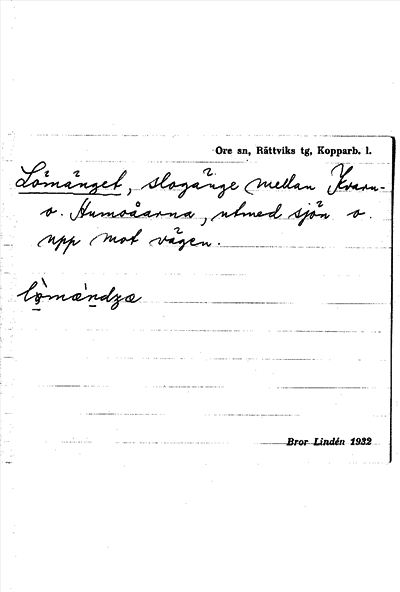 Ore sn, Rättviks tg, Kopparb. l.
Lömänget, slogänge mellan Kvarn-
o. Humoåarna, utmed sjön o.
upp mot vägen.
lö̀mæ̀ndzæ
Bror Lindén 1932